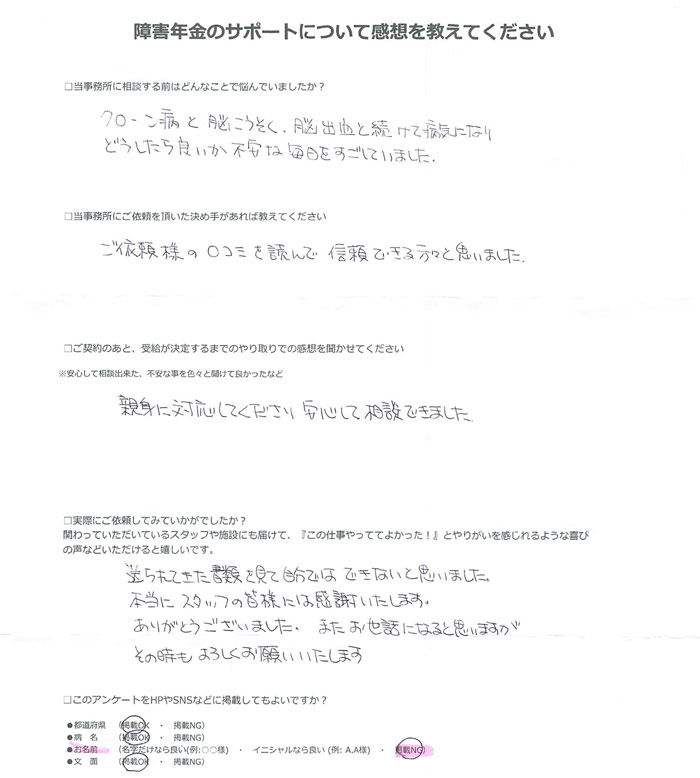 障害年金のサポートについて感想を教えてください
□当事務所に相談する前はどんなことで悩んでいましたか？
クローン病と脳こうそく、脳出血と続けて病気になり
どうしたら良いか不安な毎日をすごしていました.
□当事務所にご依頼を頂いた決め手があれば教えてください
ご依頼様の口コミを読んで信頼できる方々と思いました.
□ご契約のあと、受給が決定するまでのやり取りでの感想を聞かせてください
※安心して相談出来た、不安な事を色々と聞けて良かったなど
親身に対応してくださり安心して相談できました.
□実際にご依頼してみていかがでしたか？
関わっていただいているスタッフや施設にも届けて、『この仕事やっててよかった！』とやりがいを感じれるような喜び
の声などいただけると嬉しいです。
送られてきた書類を見て自分ではできないと思いました。
本当にスタッフの皆様には感謝いたします。
ありがとうございました. またお世話になると思いますが
その時もよろしくお願いいたします
□このアンケートをHPやSNSなどに掲載してもよいですか？
●都道府県 （掲載OK ・ 掲載NG）
●病 名 （掲載OK ・ 掲載NG）
●お名前 （名字だけなら良い(例:○○様) ・ イニシャルなら良い (例: A.A様) ・ 掲載NG）
●文 面 （掲載OK ・ 掲載NG）